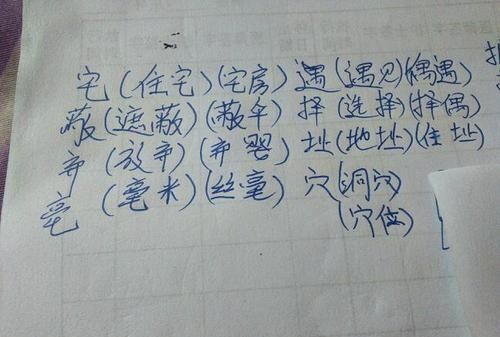 宅(住宅)(宅房)遇(遇见)(偶遇)
蔽(遮蔽)(蔽 )择(选择)(择偶)
弃(放弃)(弃婴)址(地址)(住址)
毫(毫米)(丝毫)穴(洞穴)
(穴位)